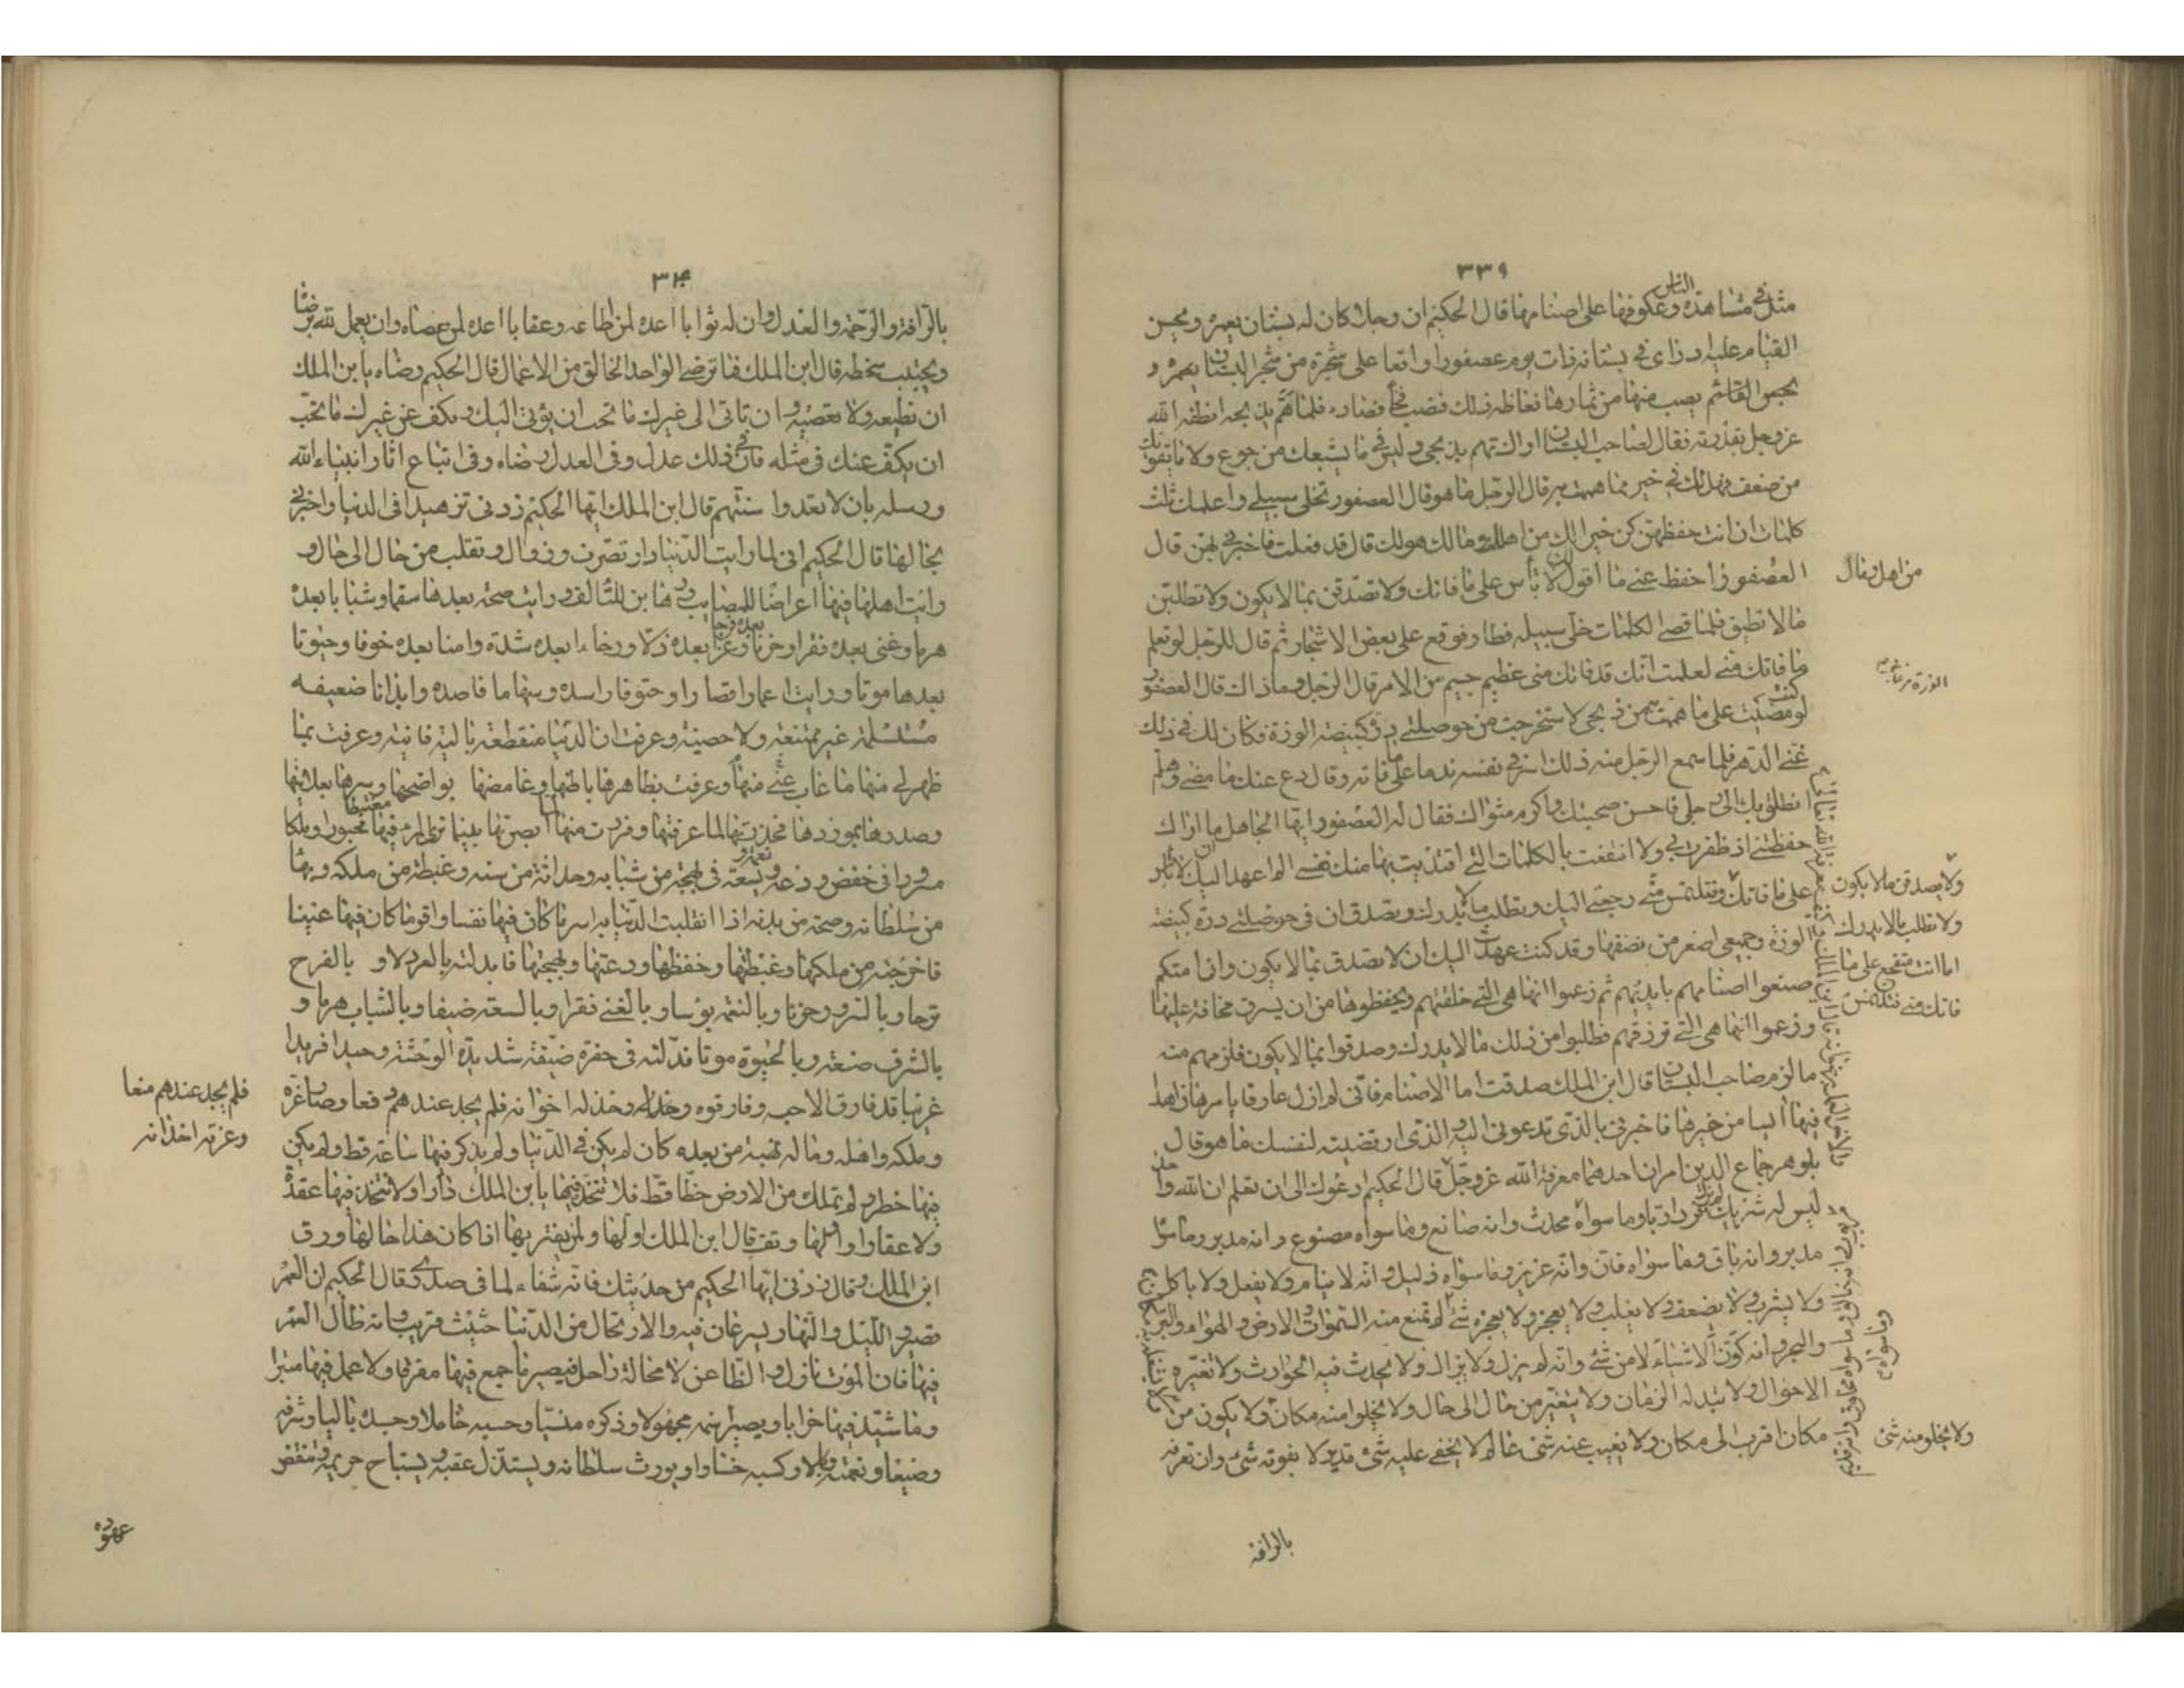 ٣٣٩
الناس
مثل في مشاهدة وعكوفها على اصنامها قال الحكيم ان رجلا كان له بستان يعمره ويحسن
القيام عليه اذ راى في بستانه ذات يوم عصفورا واقعا على شجرة من شجر البستان يعمره و
يصب منها من ثمارها فغاظه ذلك فنصب فخا فصاده فلما هم بذبحه انطقه الله
عز وجل بقدرته فقال لصاحب البستان اراك تهتم بذبحي وليس في ما يشبعك من جوع ولا ما يقويك
من ضعف فهل لك في خير مما هممت به قال الرجل ما هو قال العصفور تخلى سبيلي واعلمك ثلث
كلمات ان انت حفظتهن كن خيرا لك من اهل ومال هو لك قال قد فعلت فاخبرني بهن قال
العصفور احفظ عني ما اقول لك لا تأس على ما فاتك ولا تصدقن بما لا يكون ولا تطلبن
ما لا تطيق فلما قضى الكلمات خلى سبيله فطار فوقع على بعض الاشجار ثم قال للرجل لو تعلم
ما فاتك مني لعلمت انك قد فاتك مني عظيم جسيم من الامر قال الرجل وما ذاك قال العصفور
لو كنت مضيت على ما هممت به من ذبحي لاستخرجت من حوصلتي درة كبيضة الوزة فكان لك في ذلك
غنى الدهر فلما سمع الرجل منه ذلك اسر في نفسه ندما على ما فاته وقال دع عنك ما مضى وهلم
انطلق بك الى رحلي فاحسن صحبتك واكرم مثواك فقال له العصفور ايها الجاهل ما اراك
حفظتني اذ ظفرت بي ولا انتفعت بالكلمات التي افتديت بها منك نفسي الم اعهد اليك ان لا تأس
على ما فاتك رجعتي اليك وتطلب ما لا يدرك وتصدق ان في حوصلتي درة كبيضة
الوزة وجميعي اصغر من بيضها وقد كنت عهدت اليك ان لا تصدق بما لا يكون وان امتكم
صنعوا اصنامهم بايديهم ثم زعموا انها هي التي خلقتهم ويحفظونها من ان يسرق مخافة عليها
وزعموا انها هي التي ترزقهم فطلبوا من ذلك ما لا يدرك وصدقوا بما لا يكون فلزمهم منه
ما لزم صاحب البستان قال ابن الملك صدقت اما الاصنام فاني لم ازل عارفا بامرها زاهدا
فيها آيسا من خيرها فاخبرني بالذي تدعوني اليه الذي ارتضيته لنفسك ما هو قال
بلوهر جماع الدين امران احدهما معرفة الله عز وجل قال الحكيم ادعوك الى ان تعلم ان الله واحد
ليس له شريك لم يزل فردا ربا وما سواه محدث وانه صانع وما سواه مصنوع وانه مدبر وما سواه
مدبر وانه باق وما سواه فان وانه عزيز وما سواه ذليل وانه لا ينام ولا يغفل ولا ياكل
ولا يشرب ولا يضعف ولا يغلب ولا يعجز ولا يعجزه شئ لم تمتنع منه السموات والارض والهواء والبر
والبحر وانه كون الاشياء لا من شئ وانه لم يزل ولا يزال ولا يحدث فيه الحوادث ولا تغيره
الاحوال ولا تبدله الازمان ولا يتغير من حال الى حال ولا يخلوا منه مكان ولا يكون من
مكان اقرب الى مكان ولا يغيب عنه شئ عالم لا يخفى عليه شئ قدير لا يفوته شئ وان تعرفه
من اهل ومال
ولا يصدقن ما لا يكون
ولا تطلب ما لا يدرك
اما انت متفجع على ما
فاتك مني
وما سواه
ولا يخلو منه شئ
بالرافة
٣٤٠
بالرأفة والرحمة والعدل وان له ثوابا اعده لمن اطاعه وعقابا اعده لمن عصاه وان يعمل لله برضا
ويجتنب سخطه قال ابن الملك فما ترضى الواحد الخالق من الاعمال قال الحكيم رضاه يا بن الملك
ان تطيعه ولا تعصيه وان تاتى الى غيرك ما تحب ان يؤتى اليك وتكف عن غيرك ما تحب
ان يكف عنك في مثله فان في ذلك عدل وفى العدل رضاه وفى اتباع اثار انبياء الله
ورسله بان لا تعدوا سنتهم قال ابن الملك ايها الحكيم زدنى تزهيدا فى الدنيا واخبرني
بحالها قال الحكيم انى لما رايت الدنيا دار تصرف وزوال وتقلب من حال الى حال و
رايت اهلها فيها اعراضا للمصايب ورهاين للمتالف ورايت صحة بعدها سقما وشبابا بعده
هرما وغنى بعده فقرا وفرحا بعده حزنا وعزا بعده ذلا ورخاءا بعده شدة وامنا بعده خوفا وحيوتا
بعدها موتا ورايت اعمارا قصارا وحتوفا راصده وسهاما قاصده وابدانا ضعيفه
مستسلمة غير ممتنعة ولا حصينة وعرفت ان الدنيا منقطعة بالية فانية وعرفت بما
ظهر لى منها ما غاب عني منها وعرفت بظاهرها باطنها وغامضها بواضحها وسرها بعلانيتها
وصدرها بورودها فحذرتها لما عرفتها وفررت منها لما ابصرتها بينما ترى المرء فيها مغتبطا محبورا وملكا
مسرورا فى خفض ودعة ونعمة وسعة فى بهجة من شبابه وحداثة من سنه وغبطة من ملكه وبهاء
من سلطانه وصحة من بدنه اذا انقلبت الدنيا به اسر ما كان فيها نفسا واقر ما كان فيها عينا
فاخرجته من ملكها وغبطتها وخفضها ودعتها وبهجتها فابدلته بالعز ذلا و بالفرح
ترحا وبالسرور حزنا وبالنعمة بؤسا وبالغنى فقرا وبالسعة ضيقا وبالشباب هرما و
بالشرف ضعة وبالحيوة موتا فدلته فى حفرة ضيقة شديدة الوحشة وحيدا فريدا
غريبا قد فارق الاحبه وفارقوه وخذله اخوانه فلم يجد عندهم دفعا وصار عزه
وملكه واهله وماله نهبة من بعده كان لم يكن فى الدنيا ولم يذكر فيها ساعة قط ولم يكن
فيها خطر ولم تملك من الارض حظا قط فلا تتخذ فيها يا بن الملك دارا ولا تتخذن فيها عقدة
ولا عقارا وتف قال ابن الملك اف لها ولمن يغتر بها اذا كان هذا حالها ورق
ابن الملك وقال زدنى ايها الحكيم من حديثك فانه شفاء لما فى صدرى قال الحكيم ان العمر
قصير والليل والنهار يسرعان فيه والارتحال من الدنيا حثيث قريب وانه وان طال العمر
فيها فان الموت نازل والظاعن لا محالة راحل فيصير ما جمع فيها مفرقا ولا عمل فيها متبرا
وما شيد فيها خرابا ويصير اسمه مجهولا وذكره منسيا وحسبه خاملا وجسده باليا وشرفه
وضيعا ونعمته وبالا وكسبه خسارا ويورث سلطانه ويستذل عقبه ويستباح حريمه وتنقض
فلم يجد عندهم منعا
وعزته اخذانه
عهوده